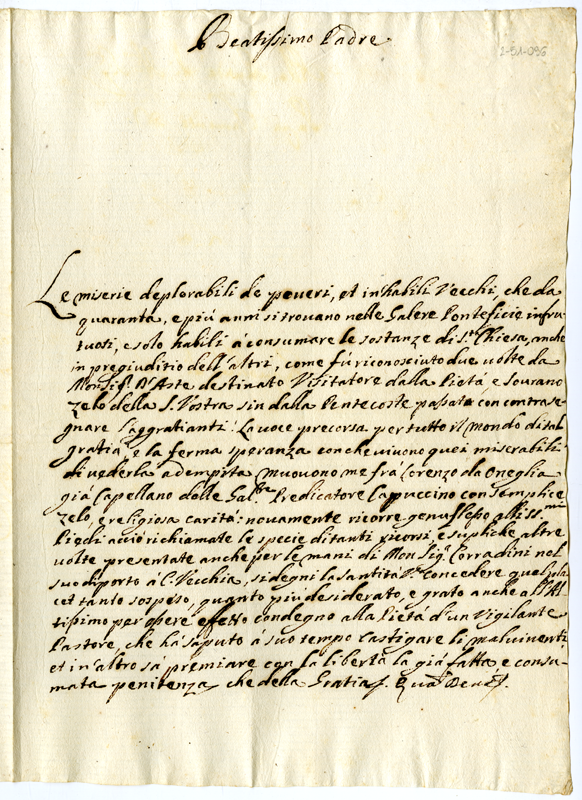 Beatissimo Padre
2-51-096
Le miserie deplorabili de poveri, et inhabili Vecchi, che da
quaranta, e più anni si trovano nelle Galere Ponteficie infru-
tuosi, e solo habili à consumare le sostanze di S.ta Chiesa, anche
in pregiuditio dell'altri, come fù riconosciuto due volte da
Monsig.r D'Aste destinato Visitatore dalla Pietá e Sourano
zelo della S. Vostra sin dalla Pentecoste passata con contrase-
gnare l'aggratianti: La voce precorsa per tutto il mondo di tal
gratia, e la ferma speranza con che vivono quei miserabili
di vederla adempita muovono me frá Lorenzo da Oneglia
giá Capellano delle Gal.re Predicatore Capuccino con semplice
zelo, e religiosa caritá: novamente ricorre genuflesso alli ss.mi
Piedi acciò richiamate le specie di tanti ricorsi, e supliche altre
volte presentate anche per le mani di Monsig.r Corradini nel
suo diporto à C. Vecchia, si degni la santitá V.ra concedere quel
tanto sospeso, quanto più desiderato, e grato anche all'Al-
tissimo per opere effetto condegno alla Pietá d'un Vigilante
Pastore che há saputo á suo tempo castigare li malviventi
et in altro sá premiare con la libertá la giá fatta e consu-
mata penitenza, che della Gratia. Qua Deus.